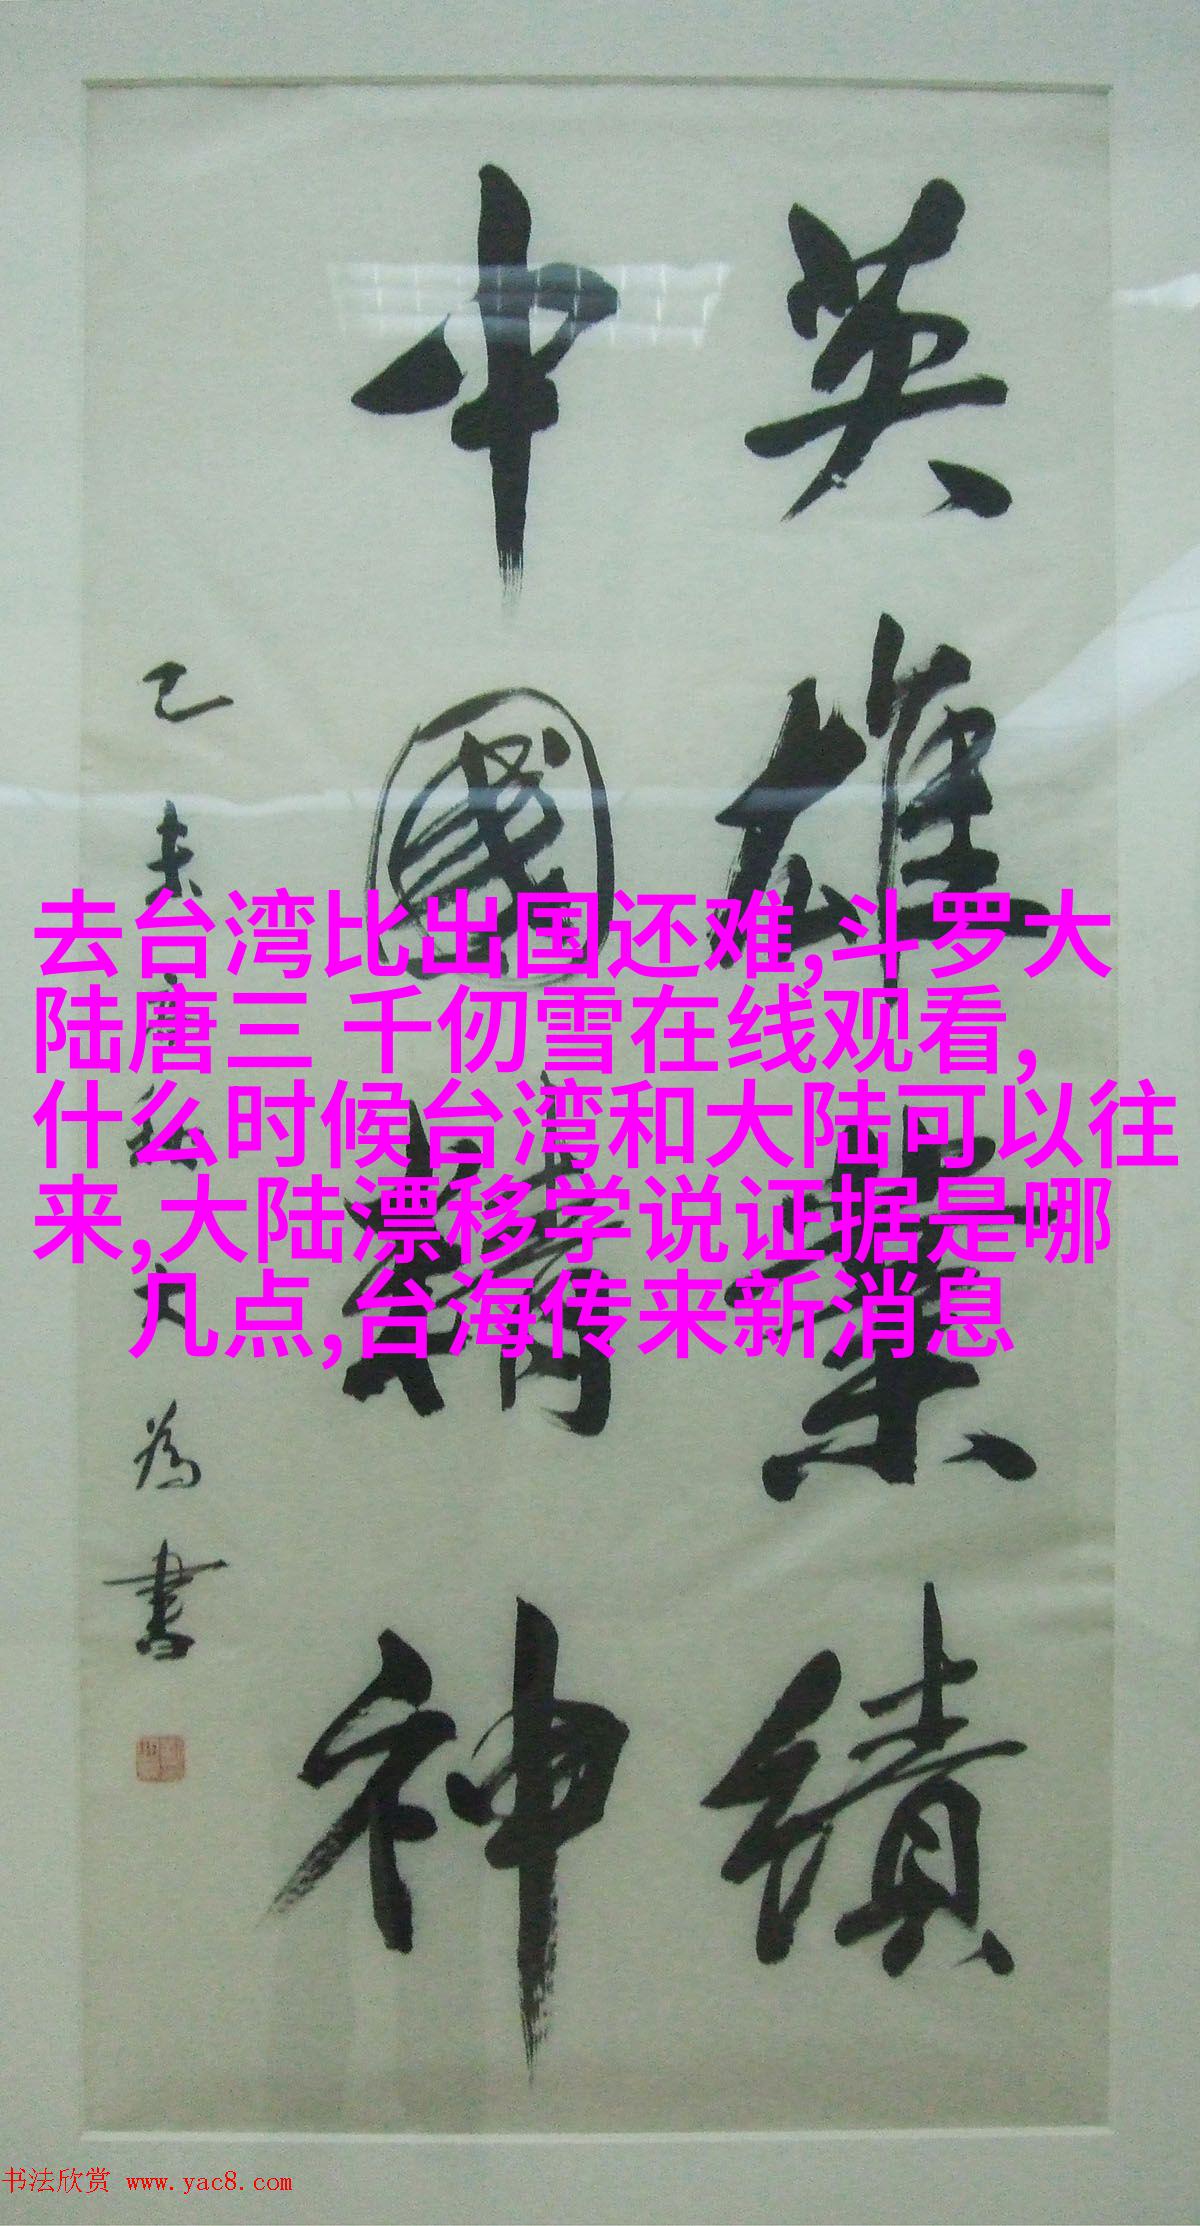 英雄業績
中國精神
乙未
為書
去台湾比出国还难,斗罗大
陆唐三 千仞雪在线观看,
什么时候台湾和大陆可以往
来,大陆漂移学说证据是哪
几点,台海传来新消息
书法欣赏 www.yac8.com